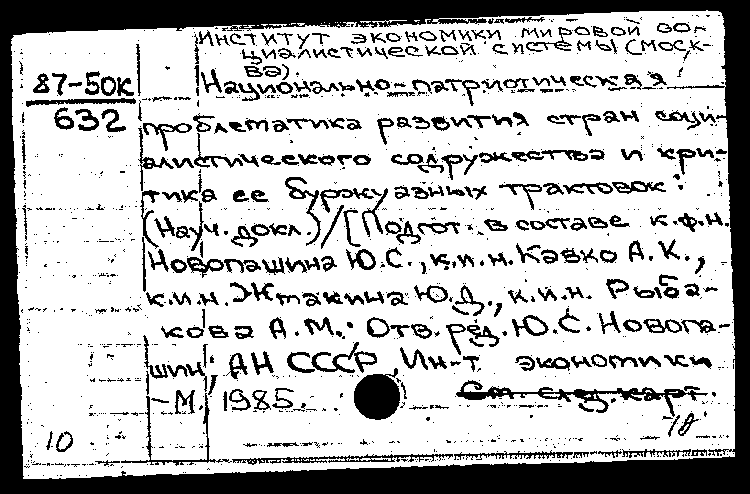 Институт экономики мировой со-
циалистической системы (Моск-
ва).
87-50К
632
Национально-патриотическая
проблематика развития стран соци-
алистического содружества и кри-
тика ее буржуазных трактовок:
(Науч. докл.)/[Подгот. в составе к.ф.н.
Новопашина Ю.С., к.и.н. Кавко А.К.,
к.и.н. Жмакина Ю.Д., к.и.н. Рыба-
кова А.М.; Отв. ред. Ю.С. Новопа-
шин; АН СССР, Ин-т экономики
-М., 1985.
См. след. карт.
10
78